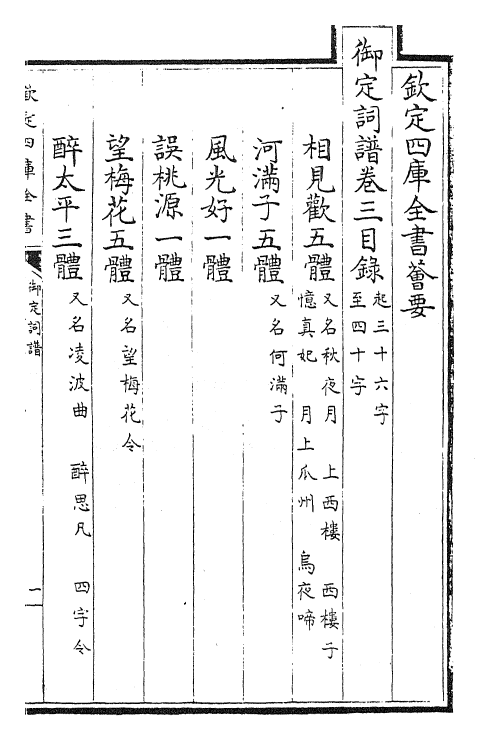 欽定四庫全書薈要
御定詞譜卷三目錄
起三十六字
至四十字
相見歡五體
又名秋夜月 上西樓 西樓子
憶真妃 月上瓜州 烏夜啼
河滿子五體
又名何滿子
風光好一體
誤桃源一體
望梅花五體
又名望梅花令
醉太平三體
又名凌波曲 醉思凡 四字令
欽定四庫全書
御定詞譜
一